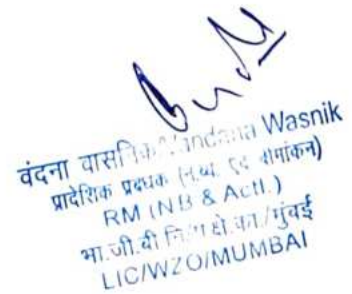 वंदना वासनिक/Vandana Wasnik
प्रादेशिक प्रबंधक (न.व्य. एवं बीमांकन)
RM (NB & Actl.)
भा.जी.बी.नि./प.क्षे.का./मुंबई
LIC/WZO/MUMBAI